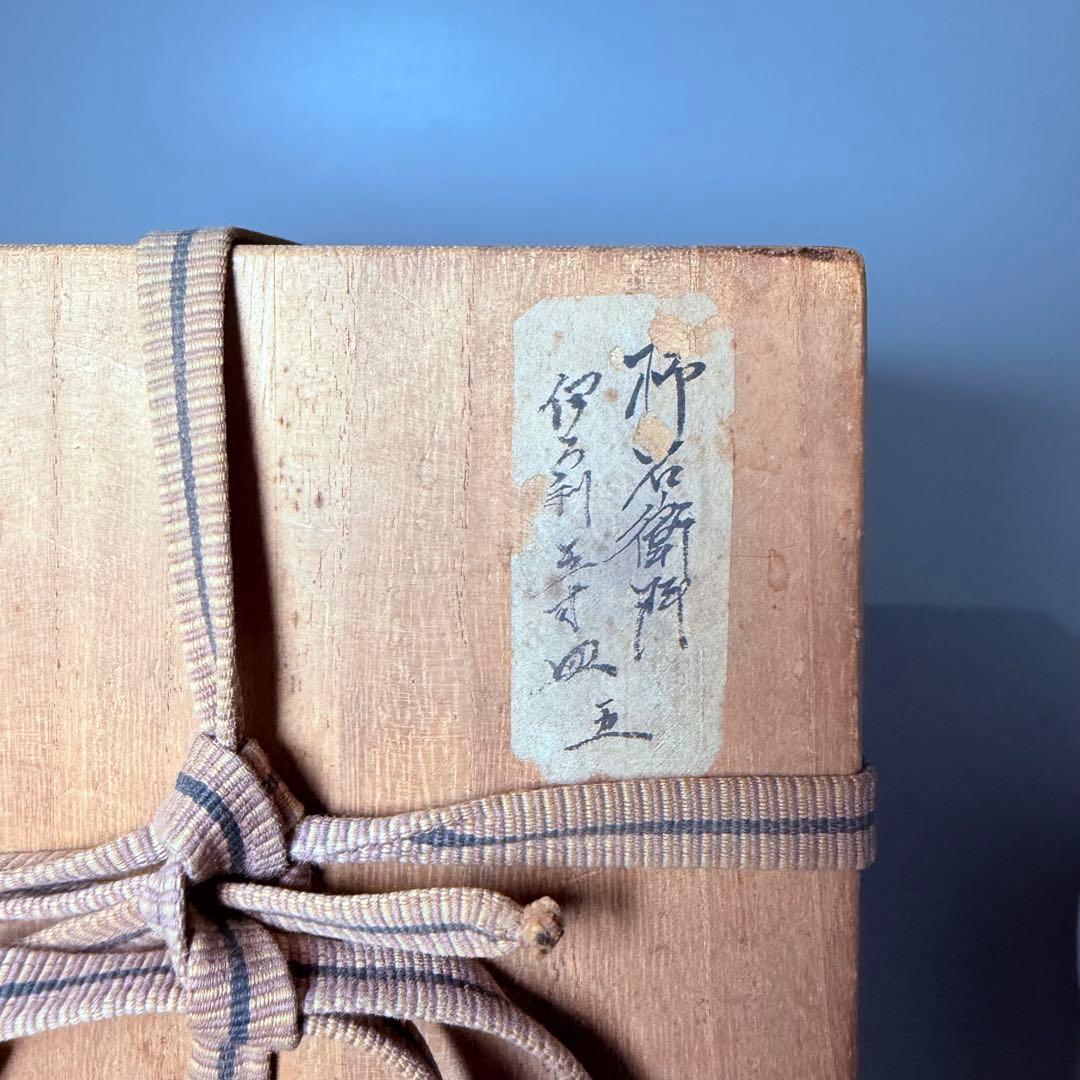 柿右衛門
伊万利 五寸皿 五